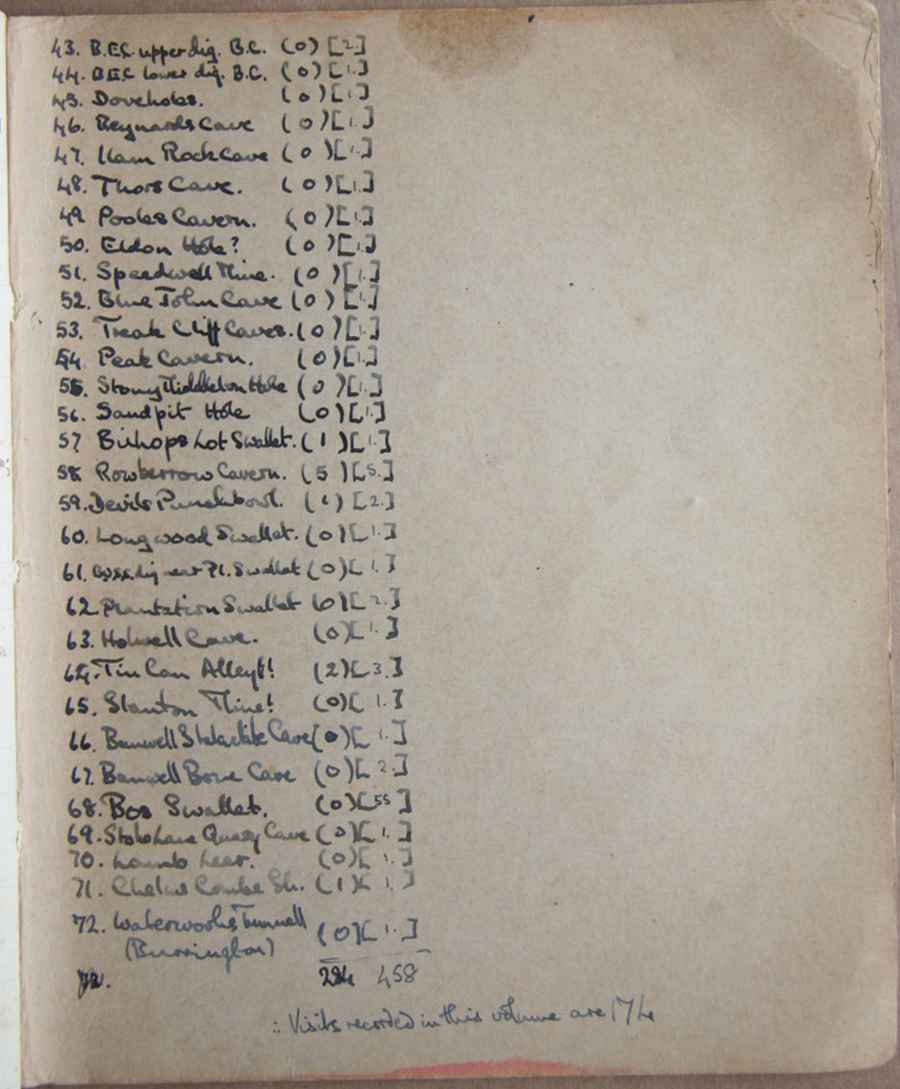 43. B.E.C. upper dig. B.C. (0) [2.]
44. B.E.C lower dig. B.C. (0) [1.]
45. Doveholes. (0) [1.]
46. Reynards Cave (0) [1.]
47. Ilam Rock Cave (0) [1.]
48. Thors Cave. (0) [1.]
49. Pooles Cavern. (0) [1.]
50. Eldon Hole? (0) [1.]
51. Speedwell Mine. (0) [1.]
52. Blue John Cave (0) [1.]
53. Treak Cliff Caves. (0) [1.]
54. Peak Cavern. (0) [1.]
55. Stony Middleton Hole (0) [1.]
56. Sandpit Hole (0) [1.]
57 Bishops Lot Swallet. (1) [1.]
58 Rowberrow Cavern. (5) [5.]
59. Devils Punchbowl. (1) [2.]
60. Longwood Swallet. (0) [1.]
61. dig near Pl. Swallet (0) [1.]
62. Plantation Swallet (0) [2.]
63. Holwell Cave. (0) [1.]
64. Tin Can Alley! (2) [3.]
65. Stanton Mine! (0) [1.]
66. Banwell Stalactite Cave (0) [1.]
67. Banwell Bone Cave (0) [2.]
68. Bos Swallet. (0) [55]
69. Stoke Lane Quarry Cave (0) [1.]
70. Lamb Leer. (0) [1.]
71. Chelms Combe Sh. (1) [1.]
72. Waterworks Tunnell (0) [1.]
(Burrington)
72. 284 458
∴ Visits recorded in this volume are 174